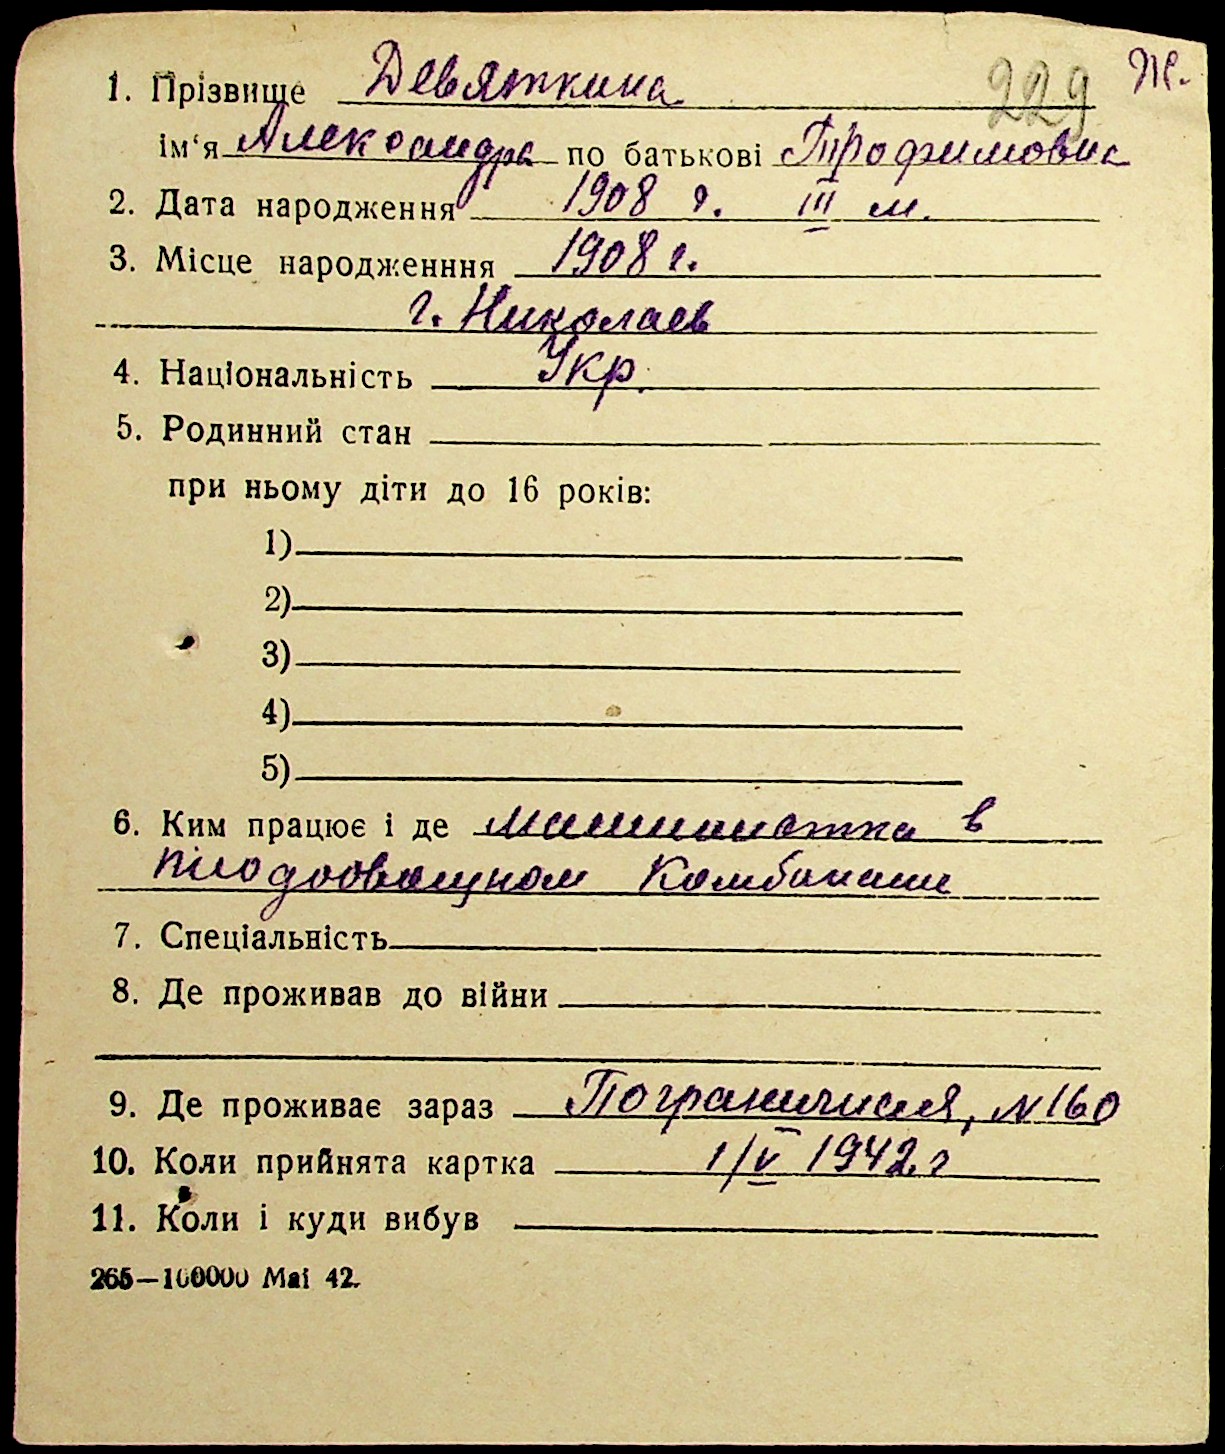 Ж.
229
1. Прізвище Девяткина
ім'я Александра по батькові Трофимовна
2. Дата народження 1908 г. III м.
3. Місце народженння 1908 г.
г. Николаев
4. Національність Укр.
5. Родинний стан
при ньому діти до 16 років:
1)
2)
3)
4)
5)
6. Ким працює і де машинистка в
плодоовощном Комбинате
7. Спеціальність
8. Де проживав до війни
9. Де проживає зараз Пограничная, №160
10. Коли прийнята картка 1/V 1942 г
11. Коли і куди вибув
265—100000 Маі 42.